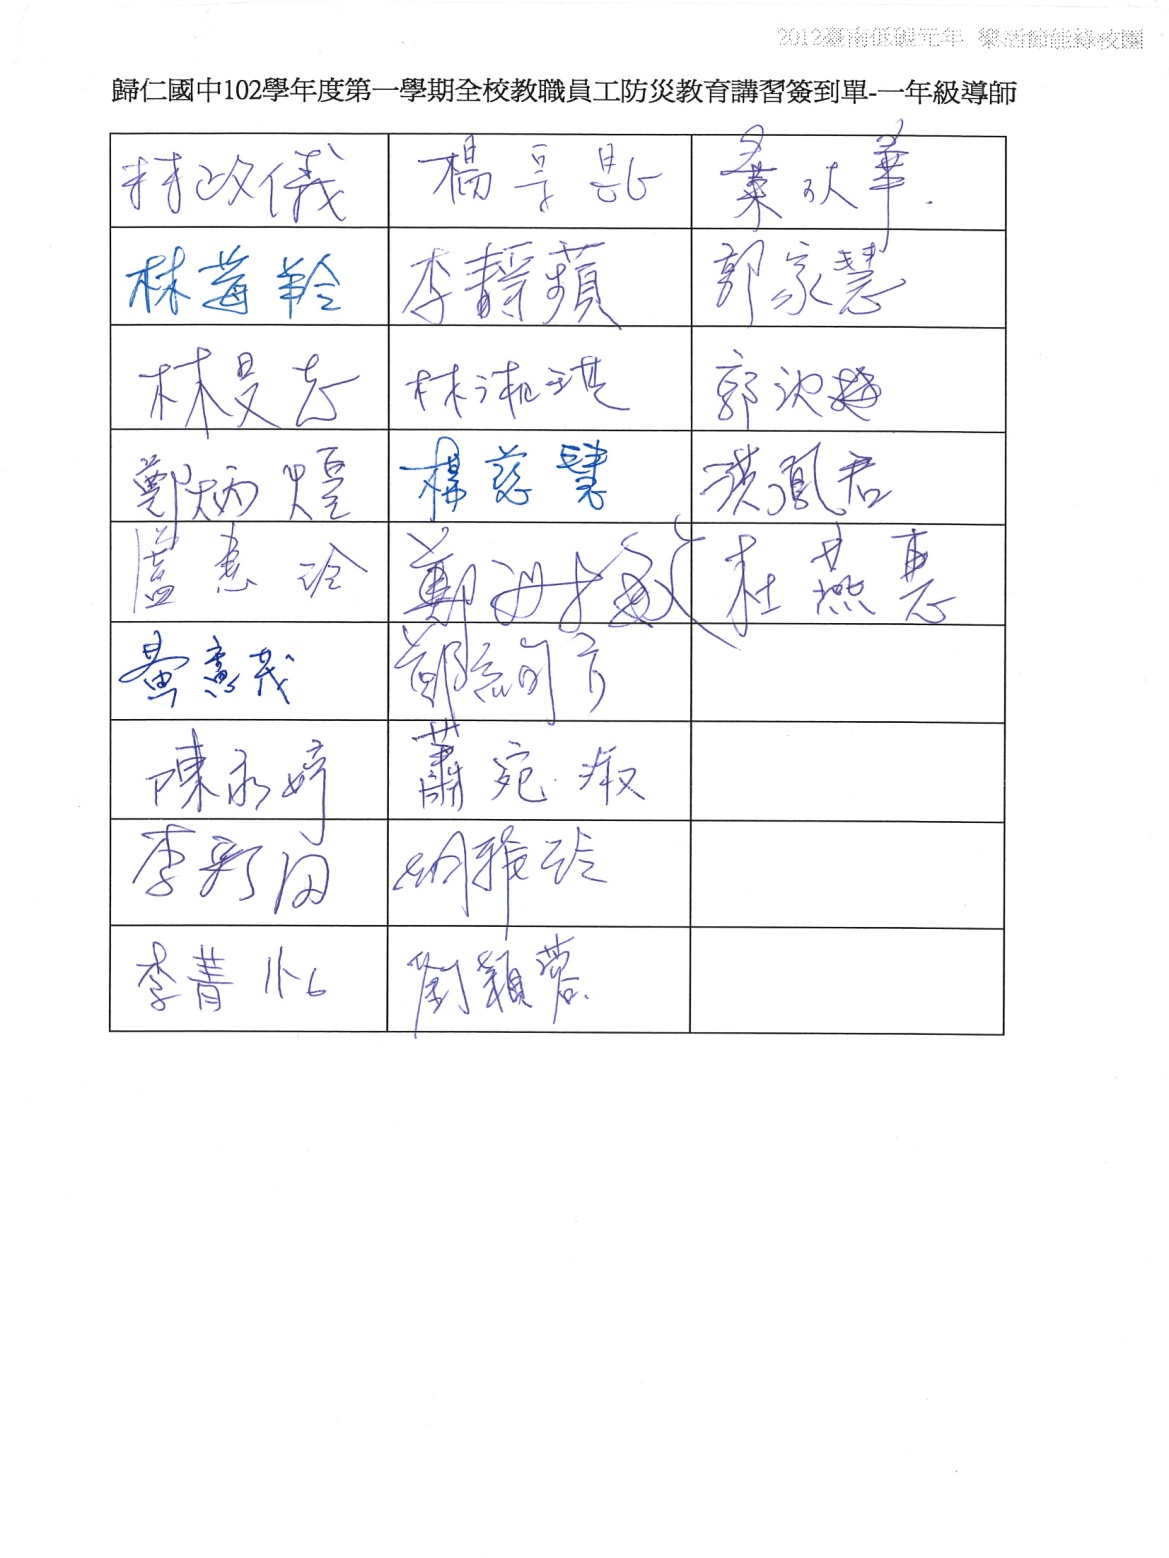 2012臺南低碳元年 樂活節能綠校園
歸仁國中102學年度第一學期全校教職員工防災教育講習簽到單-一年級導師
林政儀 楊享 華
林莓羚 李靜蘋 郭家慧
林旻 林淑琪 郭
鄭炳煌 楊慈慧 鳳君
盧惠玲 鄭 杜燕惠
黃憲茂 鄭絢
陳永婷 蕭宛淑
李 胡雅玲
李菁 劉穎蓉